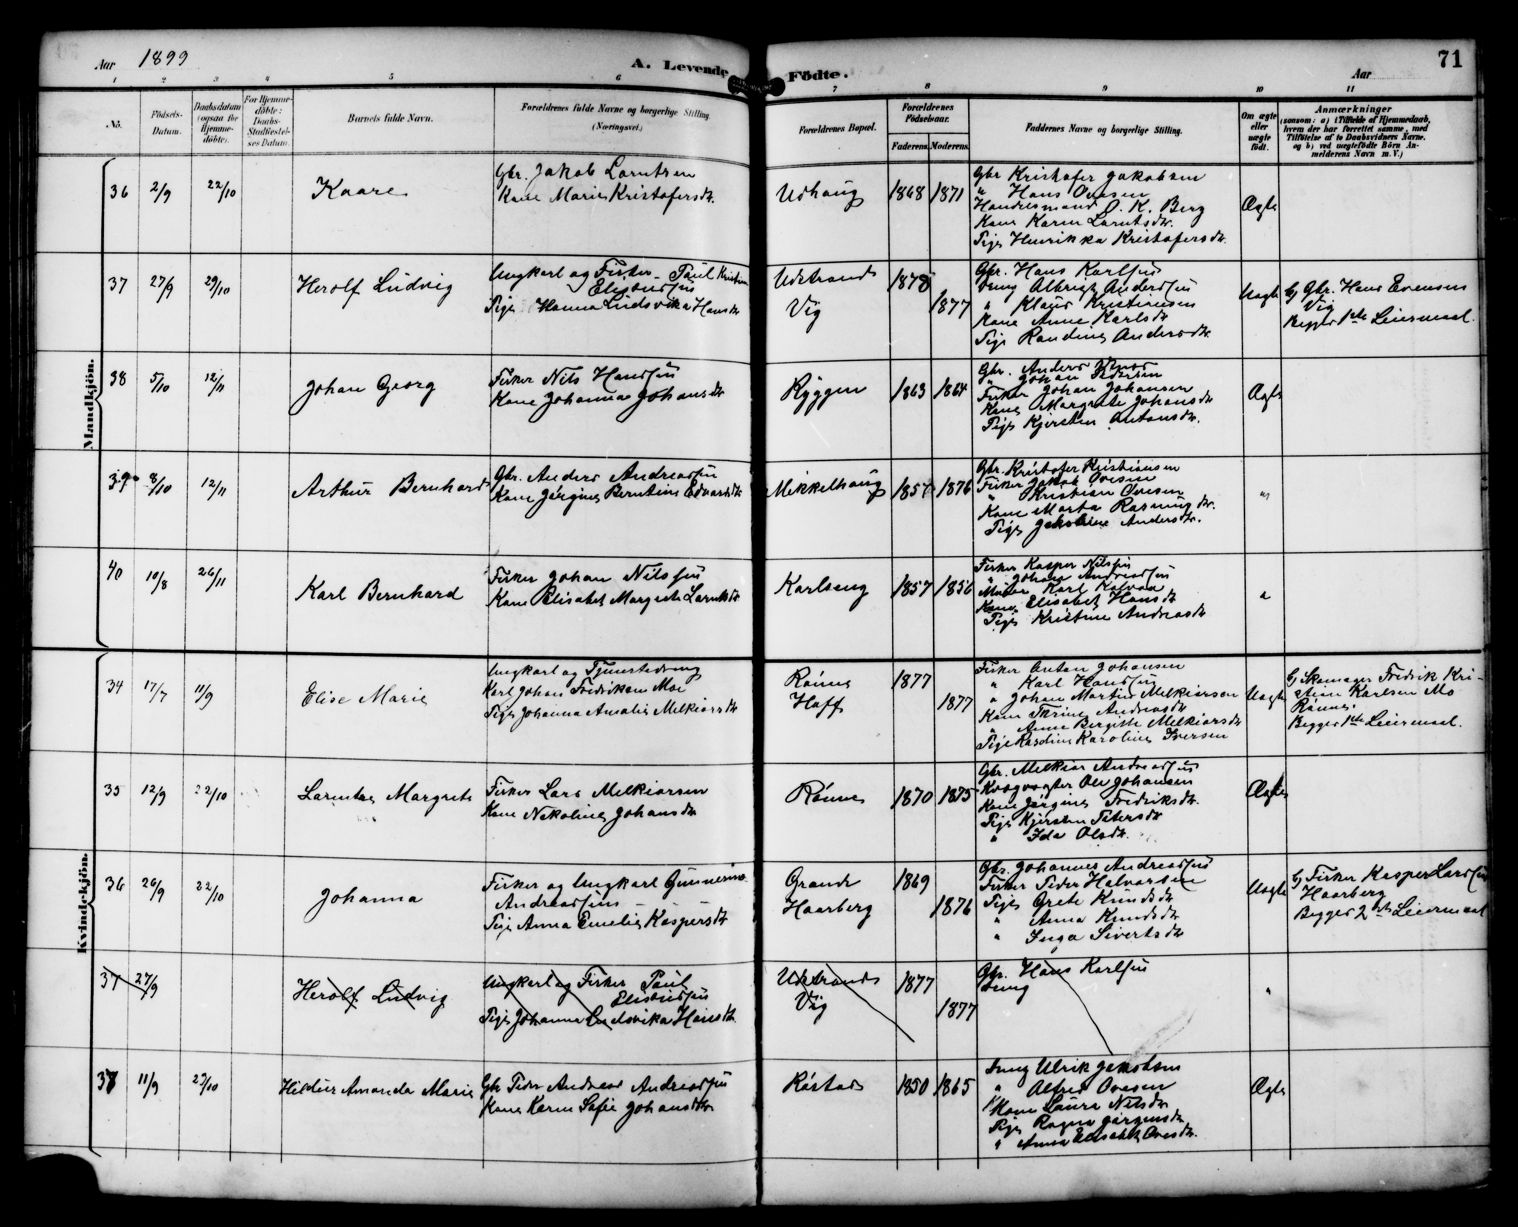 Aar 1899
A. Levende Fødte.
Aar
71
1 2 3 4 5 6 7 8 9 10 11
No.
Fødsels-Datum.
Daabsdatum (ogsaa for Hjemme-døbte).
For Hjemme-døbte: Daabs-Stadfæstel-ses Datum.
Barnets fulde Navn.
Forældrenes fulde Navne og borgerlige Stilling. (Næringsvei.)
Forældrenes Bopæl.
Forældrenes Fødselsaar.
Faderens. Moderens.
Faddernes Navne og borgerlige Stilling.
Om ægte eller uægte født.
Anmærkninger
(saasom: a) i Tilfælde af Hjemmedaab,
hvem der har forrettet samme, med
Tilføielse af to Daabsvidners Navne.
og b) ved uægtefødte Børn An-
melderens Navn m. V.)
Mandkjøn.
36 2/9 22/10 Kaare
Gbr. Jakob Larntsen
Kone Marie Kristofersdr.
Udhaug 1868 1871
Gbr Kristofer Jakobsen
" Hans Ovesen
Handelsmand O. K. Berg
Kone Karen Larntsdr.
Pige Henrikka Kristofersdr.
Ægte
37 27/9 29/10 Herolf Ludvig
Ungkarl og Fisker Paul Kristian
Eliseussen
Pige Hanna Ludvika Hansdr
Udstrand
Vig
1878
1877
Gbr. Hans Karlsen
Ung Albrigt Anderssen
" Klaus Kristiansen
Kone Anne Karlsdr
Pige Randine Andersdr.
Uægte
G Gbr. Hans Evensen
Vig
Begges 1ste Leiermaal.
38 5/10 12/11 Johan Georg
Fisker Nils Hanssen
Kone Johanna Johansdr
Ryggen 1863 1864
Gbr. Anders
" Johan Pedersen
Fisker Johan Johansen
Kone Margrete Johansdr
Pige Kjersten Antonsdr.
Ægte
39 8/10 12/11 Arthur Bernhard
Gbr. Anders Andreassen
Kone Jørgine Berntine Edvardsdr
Mikkelhaug 1857 1876
Gbr. Kristofer Kristiansen
Fisker Jakob Ovesen
" Kristian Ovesen
Kone Marta Rasmusdr.
Pige Jakobine Andersdr.
"
40 10/8 26/11 Karl Bernhard
Fisker Johan Nilssen
Kone Elisabet Margrete Larntsdr
Karlseng 1857 1856
Fisker Kasper Nilssen
" Johan Andreassen
Maler Karl
Kone Elisabet Hansdr
Pige Kristine Andreasdr
"
Kvindekjøn.
34 17/7 11/9 Elise Marie
Ungkarl og Tjenestedreng
Karl Johan Fredriksen Moe
Pige Johanna Amalie Melkiorsdr
Rønne
Hoff
1877
1877
Fisker Anton Johansen
" Karl Hanssen
" Johan Martin Melkiorsen
Kone Trine Andreasdr
" Anne Bergitte Melkiorsdr
Pige Rasdine Karoline Iversen
Uægte
G Skomager Fredrik Kri-
stian Karlsen Mo
Rønne.
Begges 1ste Leiermaal.
35 12/9 22/10 Larntse Margrete
Fisker Lars Melkiorsen
Kone Nekoline Johansdr
Rønne 1870 1875
Gbr. Melkior Andreassen
Ole Johansen
Kone Jørgine Fredriksdr.
Pige Kjersten Petersdr
" Ida Olsdr.
Ægte
36 26/9 22/10 Johanna
Fisker og Ungkarl Gunnerius
Andreassen
Pige Anna Emelie Kaspersdr
Grande
Haarberg
1869
1876
Gbr. Johannes Andreassen
Fisker Peder Halvorsen
Pige Grete Knudsdr
" Anna Knudsdr
" Inga Sivertsdr
Uægte
G Fisker Kasper Larssen
Haarberg
Begges 2det Leiermaal
37 27/9 Herolf Ludvig
Ungkarl og Fisker Paul
Eliseussen
Pige Johanna Ludvika Hansdr.
Udstrand
Vig
1877
1877
Gbr. Hans Karlsen
Ung
"
37 11/9 29/10 Hildur Amanda Marie
Gbr Peder Andreas Andreassen
Kone Karen Sofie Johansdr
Røstad 1850 1865
Ung Ulrik Jakobsen
" Alfred Ovesen
Kone Laura Nilsdr
Pige Ragna Jørgensdr
" Anna Elisabet Ovesdr.
Ægte